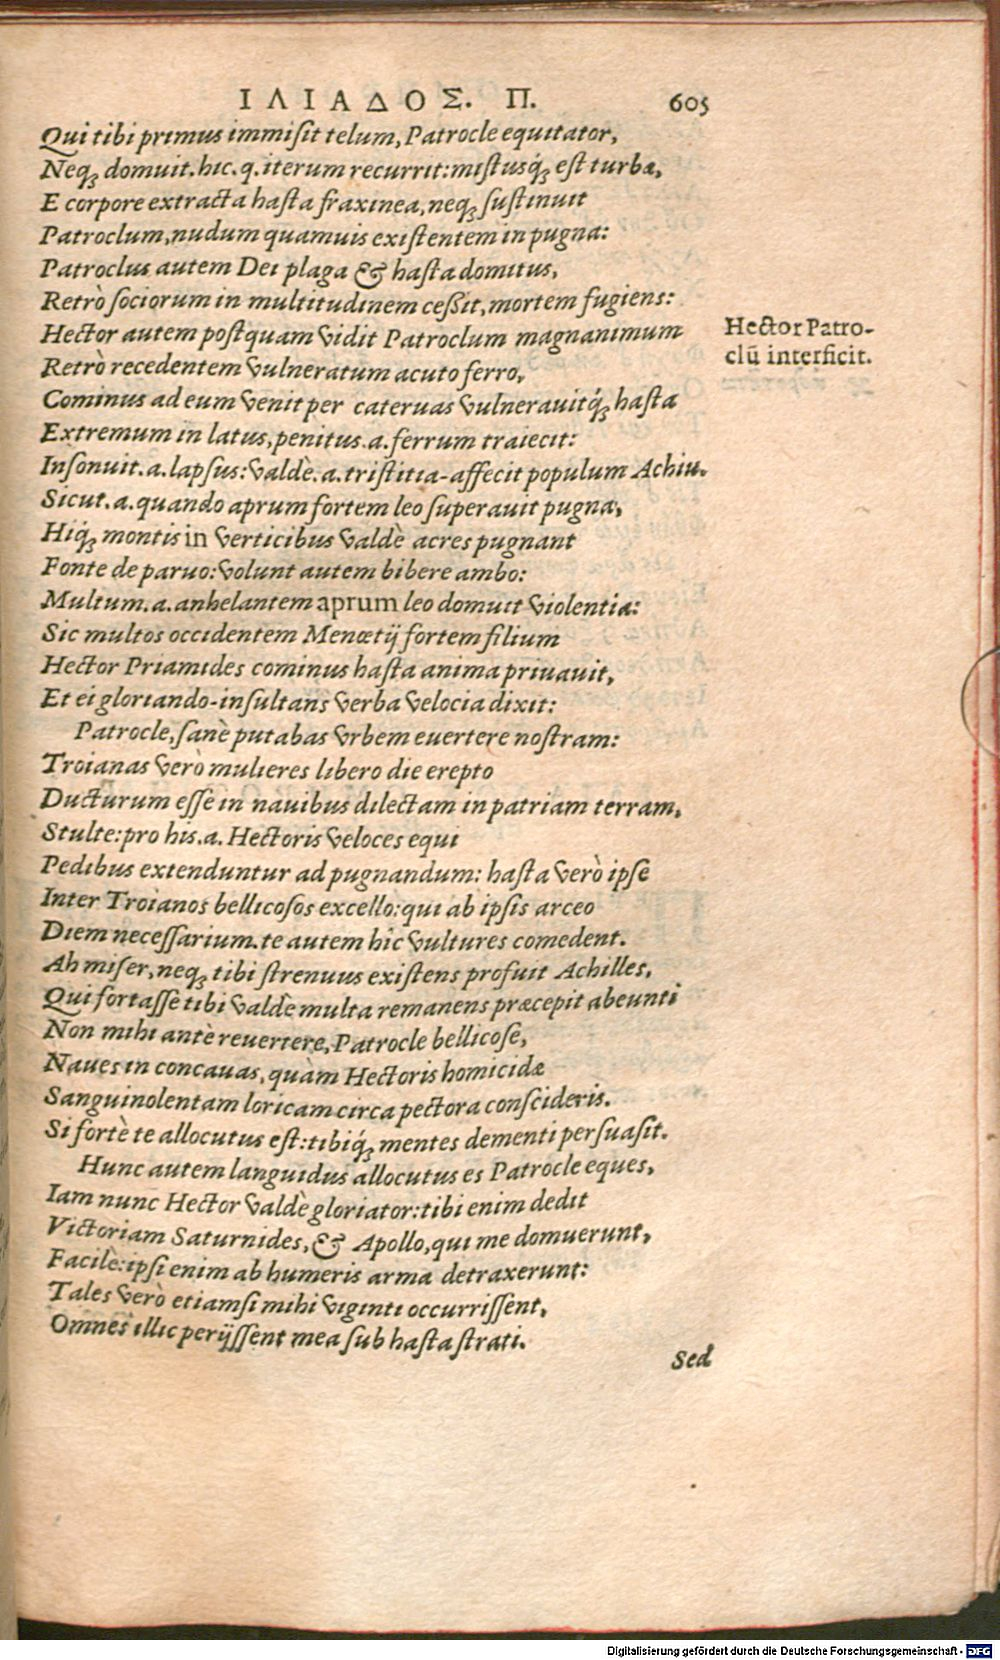 ΙΛΙΑΔΟΣ. Π. 605
Qui tibi primus immiſit telum, Patrocle equitator,
Neqꝫ domuit. hic. q. iterum recurrit: miſtusq́ꝫ eſt turbæ,
E corpore extracta haſta fraxinea, neqꝫ ſuſtinuit
Patroclum, nudum quamuis exiſtentem in pugna:
Patroclus autem Dei plaga & haſta domitus,
Retrò ſociorum in multitudinem ceßit, mortem fugiens:
Hector autem poſtquam vidit Patroclum magnanimum
Retrò recedentem vulneratum acuto ferro,
Cominus ad eum venit per cateruas vulnerauitq́ꝫ haſta
Extremum in latus, penitus. a. ferrum traiecit:
Inſonuit. a. lapſus: valdè. a. triſtitia-affecit populum Achiu.
Sicut. a. quando aprum fortem leo ſuperauit pugna,
Hiq́ꝫ montis in verticibus valdè acres pugnant
Fonte de paruo: volunt autem bibere ambo:
Multum. a. anhelantem aprum leo domuit violentia:
Sic multos occidentem Menœtij fortem filium
Hector Priamides cominus haſta anima priuauit,
Et ei gloriando-inſultans verba velocia dixit:
Patrocle, ſanè putabas vrbem euertere noſtram:
Troianas verò mulieres libero die erepto
Ducturum eſſe in nauibus dilectam in patriam terram,
Stulte: pro his. a. Hectoris veloces equi
Pedibus extenduntur ad pugnandum: haſta verò ipſe
Inter Troianos bellicoſos excello: qui ab ipſis arceo
Diem neceſſarium. te autem hîc vultures comedent.
Ah miſer, neqꝫ tibi ſtrenuus exiſtens profuit Achilles,
Qui fortaſſe tibi valdè multa remanens præcepit abeunti
Non mihi antè reuertere, Patrocle bellicoſe,
Naues in concauas, quàm Hectoris homicidæ
Sanguinolentam loricam circa pectora conſcideris.
Si fortè te allocutus eſt: tibiq́ꝫ mentes dementi perſuaſit.
Hunc autem languidus allocutus es Patrocle eques,
Iam nunc Hector valdè gloriator: tibi enim dedit
Victoriam Saturnides, & Apollo, qui me domuerunt,
Facilè: ipſi enim ab humeris arma detraxerunt:
Tales verò etiamſi mihi viginti occurriſſent,
Omnes illic perijſſent mea ſub haſta ſtrati.
Sed
Hector Patro-
clū interficit.
Digitalisierung gefördert durch die Deutsche Forschungsgemeinschaft - DFG